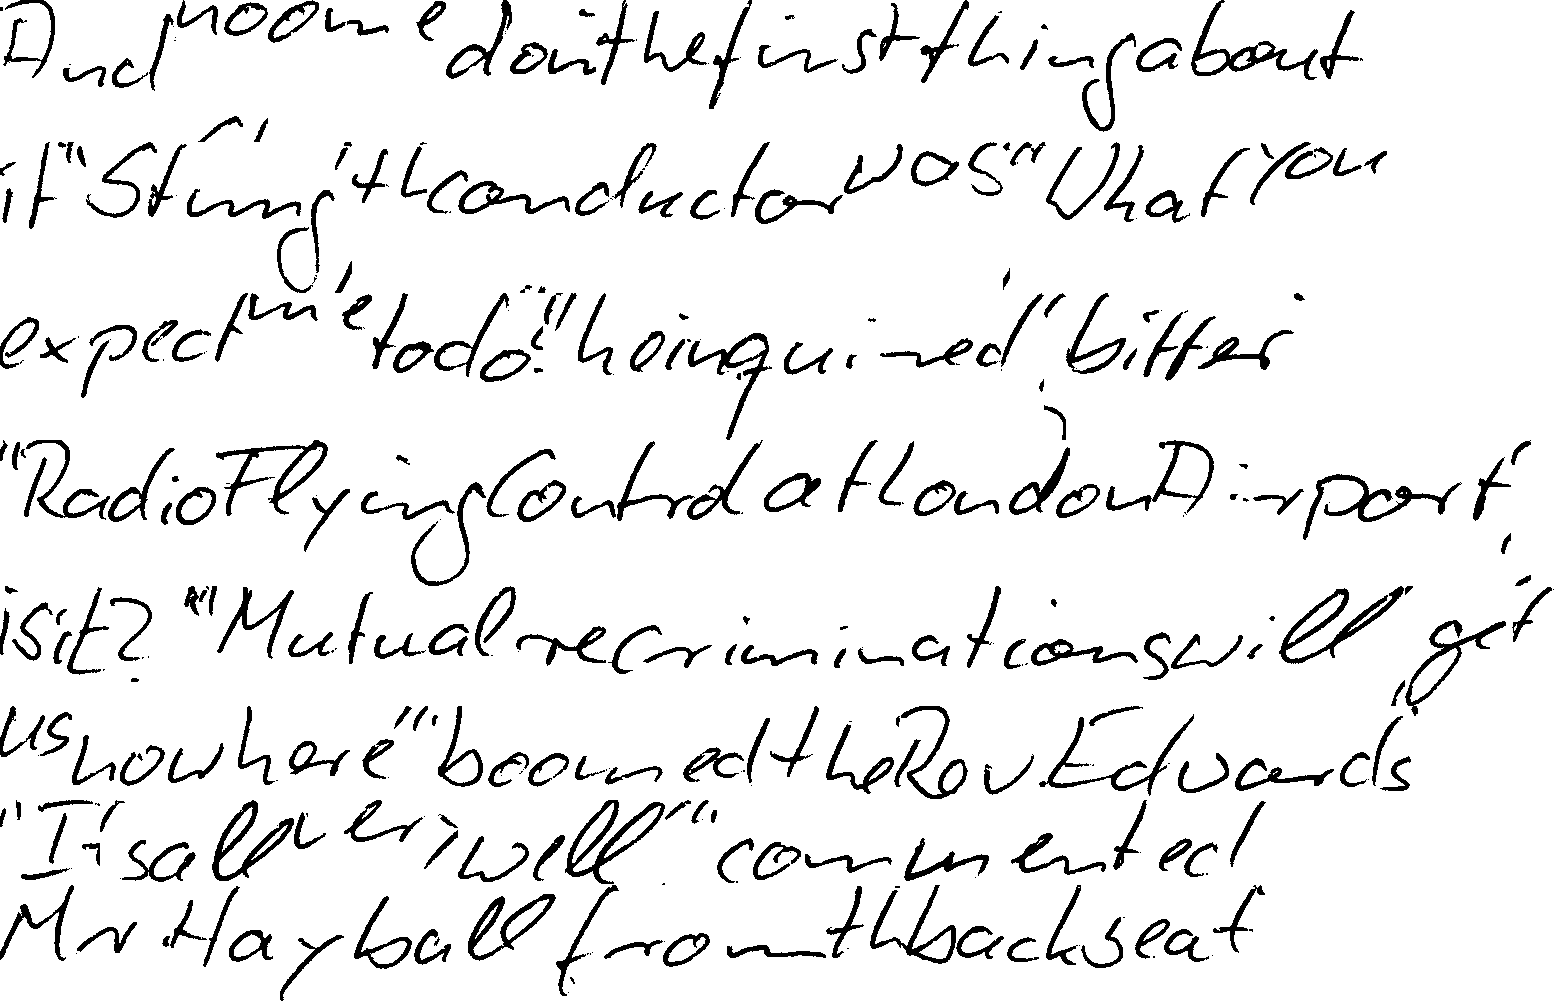 And no one doin the first thing about
it" String' th conductor was "What you
expect me to do?" he inquired, bitter
"Radio Flying Control at London Airport,
is it?" "Mutual recriminations will get
us nowhere" boomed the Rev. Edwards
"It's all very well" commented
Mr Hayball from th back seat